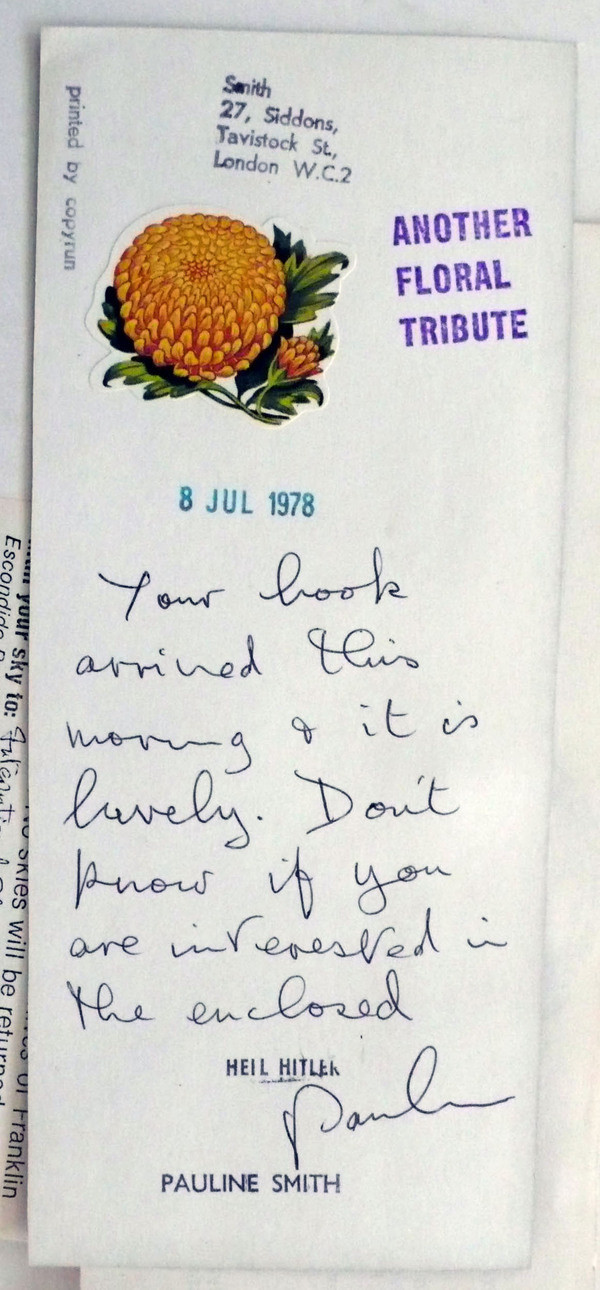 Smith
27, Siddons,
Tavistock St,
London W.C.2
printed by copyrun
ANOTHER
FLORAL
TRIBUTE
8 JUL 1978
Your book
arrived this
morning & it is
lovely. Don't
know if you
are interested in
the enclosed
HEIL HITLER
Pauline
PAULINE SMITH
your sky to:
Escondido
skies will be returned
of Franklin